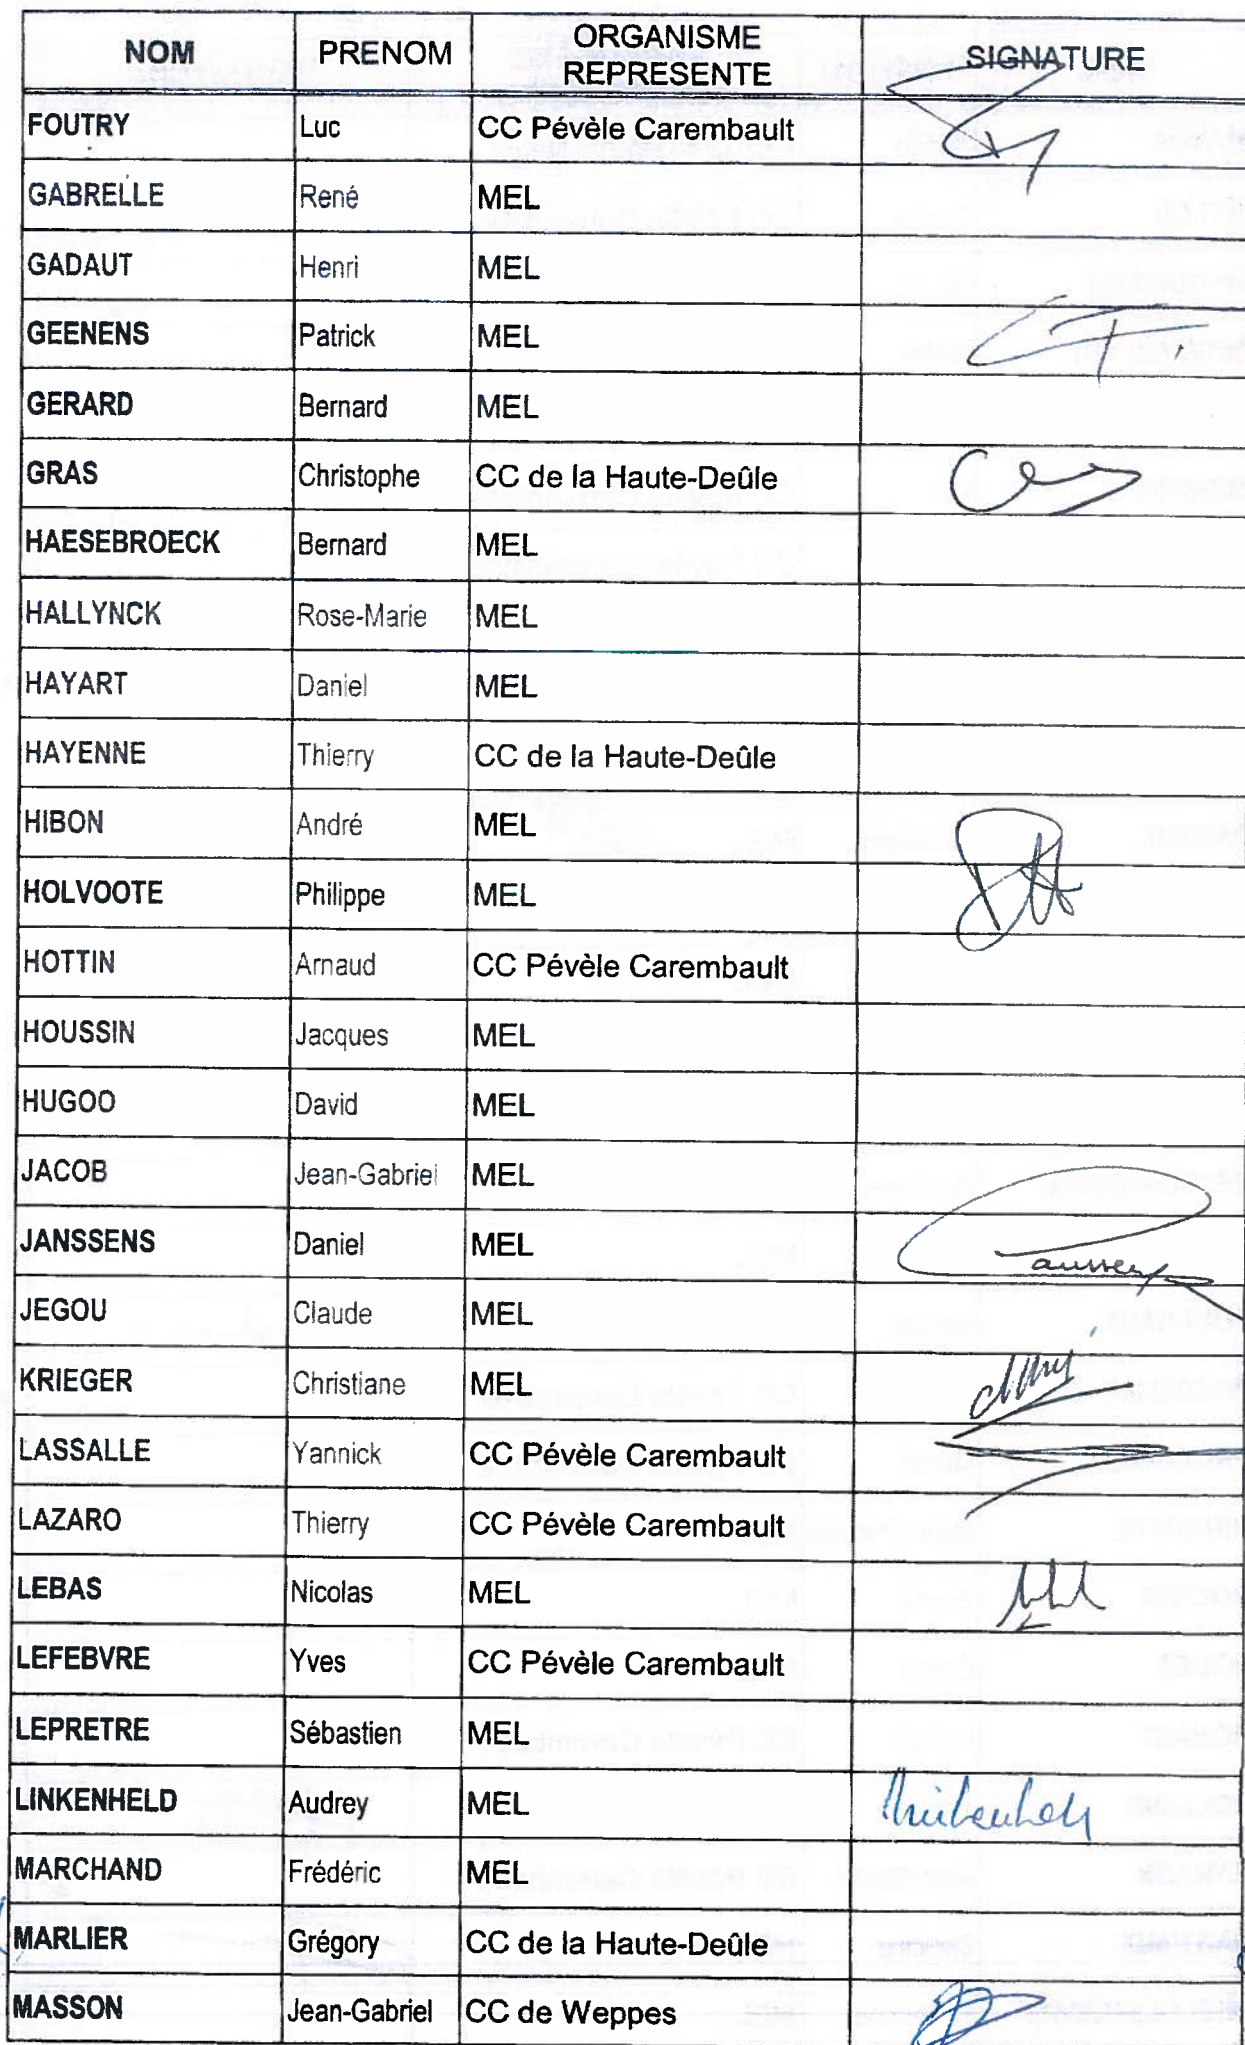 NOM PRENOM ORGANISME REPRESENTE SIGNATURE
FOUTRY Luc CC Pévèle Carembault
GABRELLE René MEL
GADAUT Henri MEL
GEENENS Patrick MEL
GERARD Bernard MEL
GRAS Christophe CC de la Haute-Deûle
HAESEBROECK Bernard MEL
HALLYNCK Rose-Marie MEL
HAYART Daniel MEL
HAYENNE Thierry CC de la Haute-Deûle
HIBON André MEL
HOLVOOTE Philippe MEL
HOTTIN Arnaud CC Pévèle Carembault
HOUSSIN Jacques MEL
HUGOO David MEL
JACOB Jean-Gabriel MEL
JANSSENS Daniel MEL
JEGOU Claude MEL
KRIEGER Christiane MEL
LASSALLE Yannick CC Pévèle Carembault
LAZARO Thierry CC Pévèle Carembault
LEBAS Nicolas MEL
LEFEBVRE Yves CC Pévèle Carembault
LEPRETRE Sébastien MEL
LINKENHELD Audrey MEL
MARCHAND Frédéric MEL
MARLIER Grégory CC de la Haute-Deûle
MASSON Jean-Gabriel CC de Weppes